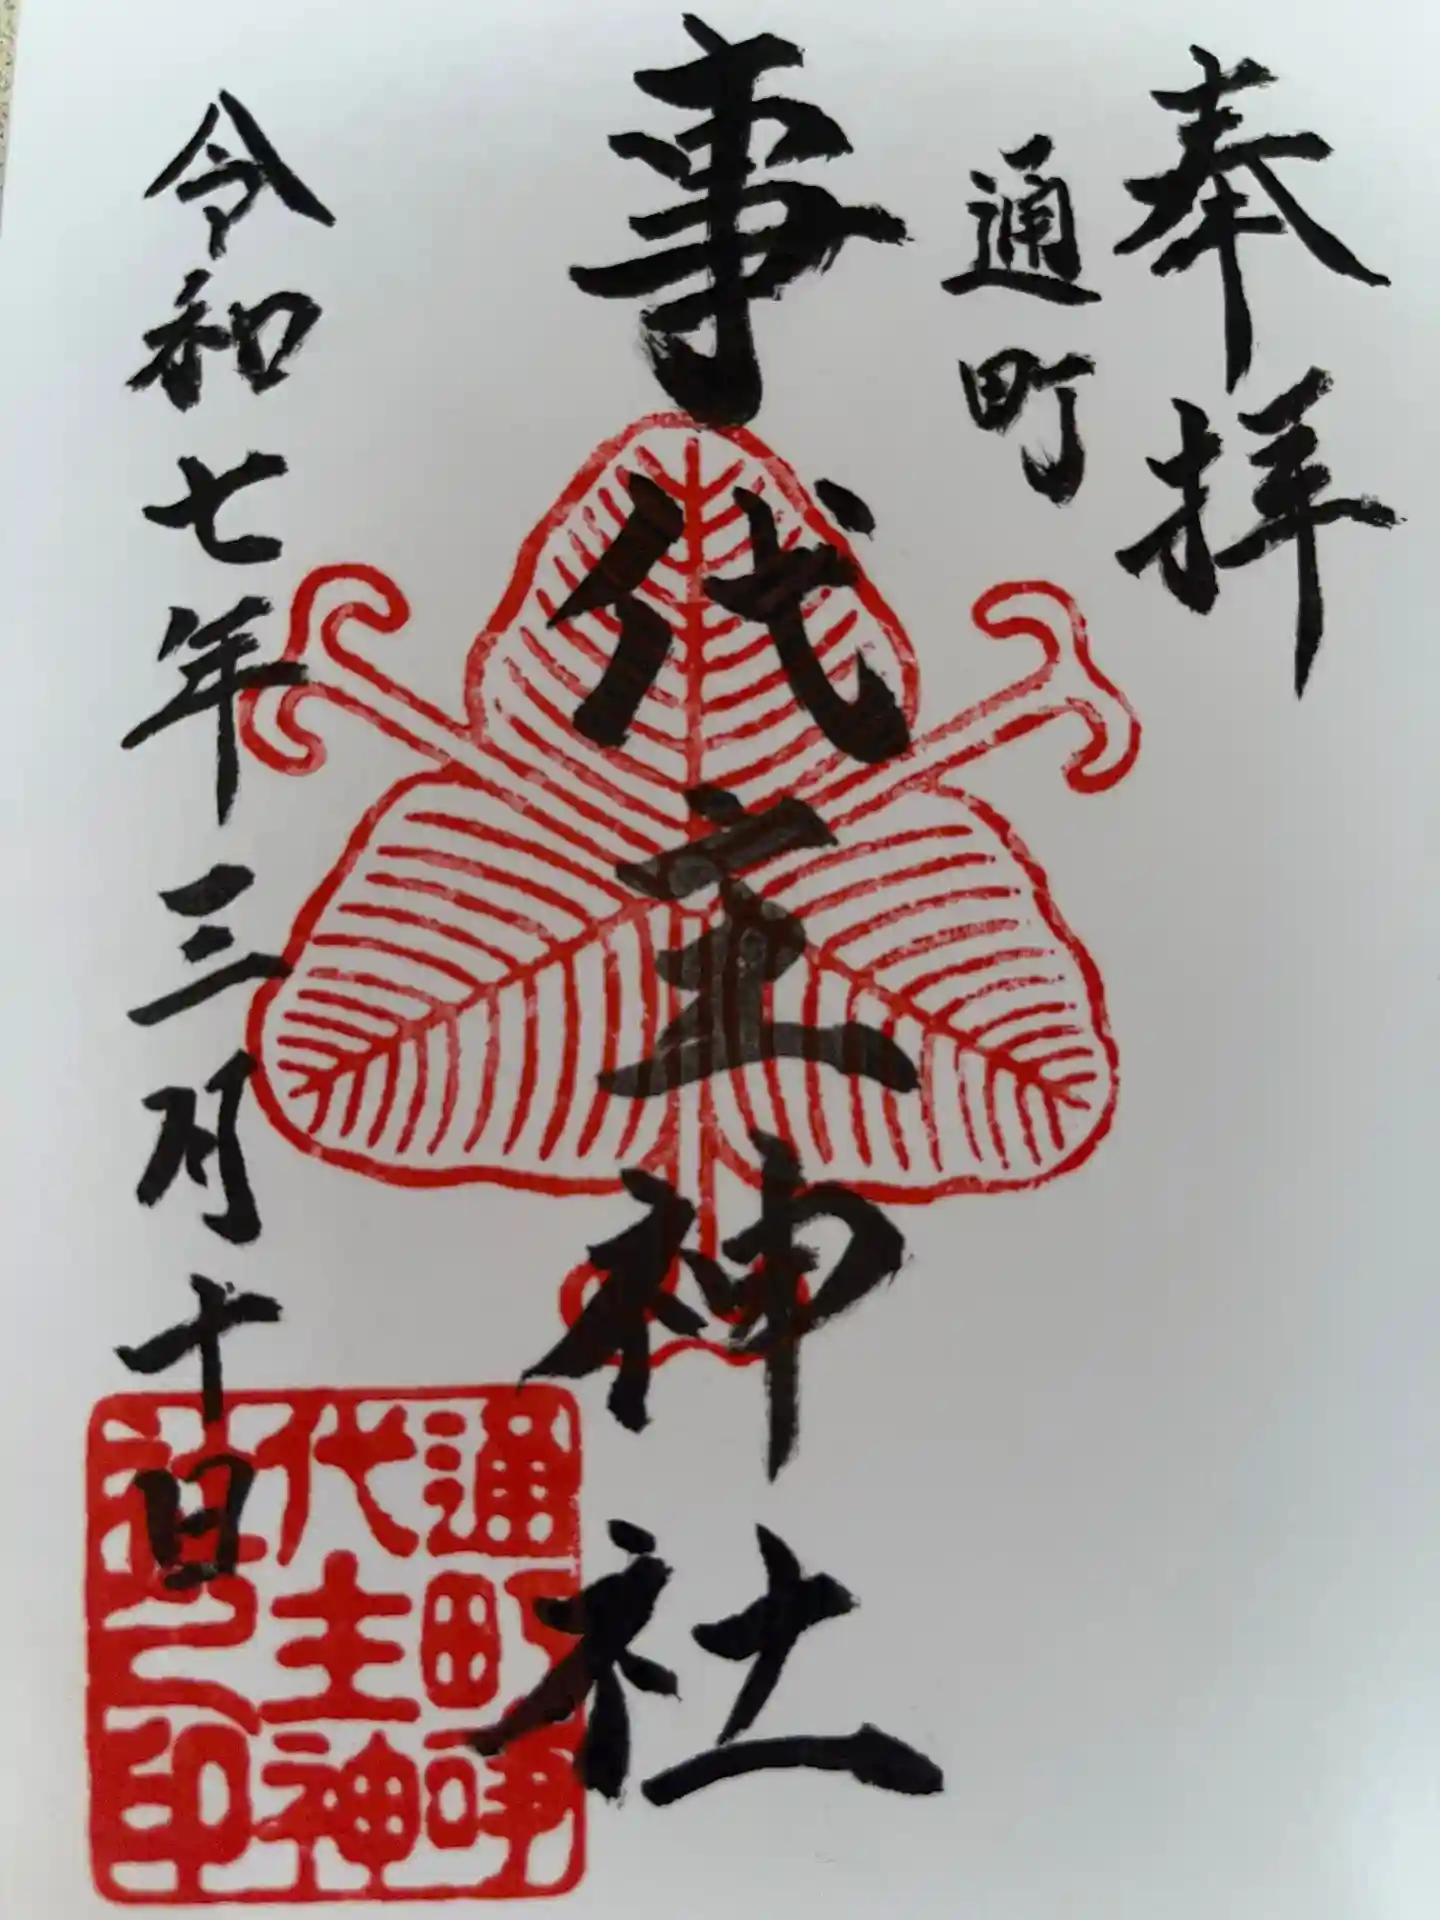 奉拝
通町
事代主神社
令和七年三月十日
通町事
代主神
社之印